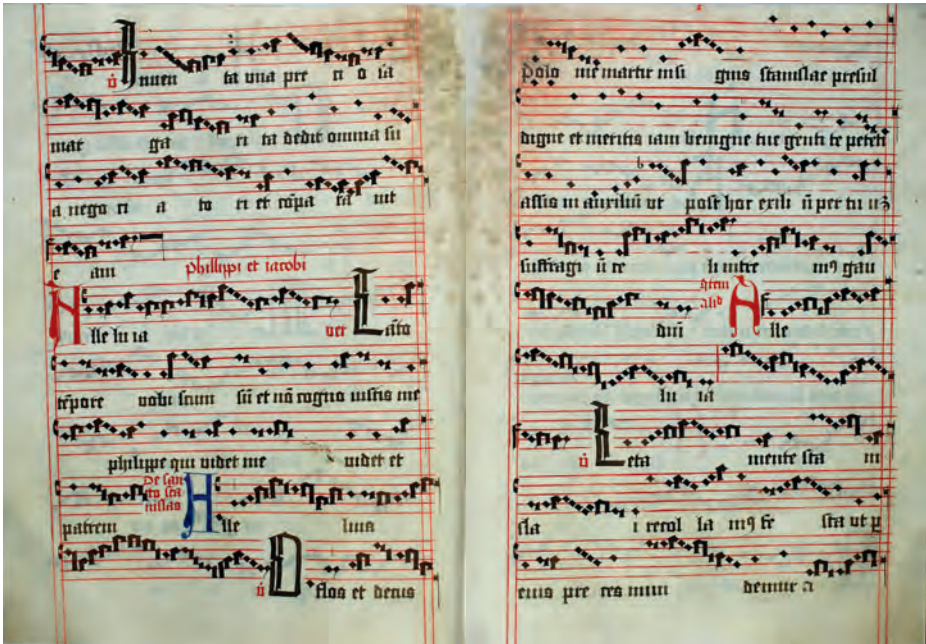 ṽ Inuen ta vna pre ti o ſa
mar ga ri ta dedit omnia ſu
a nego ti a to ri et cōpa ra uit
e am phillippi et iacobi
Alle lu ia ver Lāto
tēpore vobi ſcum ſū et nō cogno uiſtis me
philippe qui uidet me uidet et
patrem De ſan cto ſta nislao Alle luia
ṽ O flos et decus
Polo nie martir inſi gnis ſtanislae preſul
digne et meritis iam benigne tue genti te petenti
aſſis in auxiliū vt poſt hoc exili ū per tu ū
ſuffragi ū te li mur gau
diū Alle
lu ia
ṽ Leta mente ſta ni
ſla i recol la ſta vt p
eius pre ces mun demur a